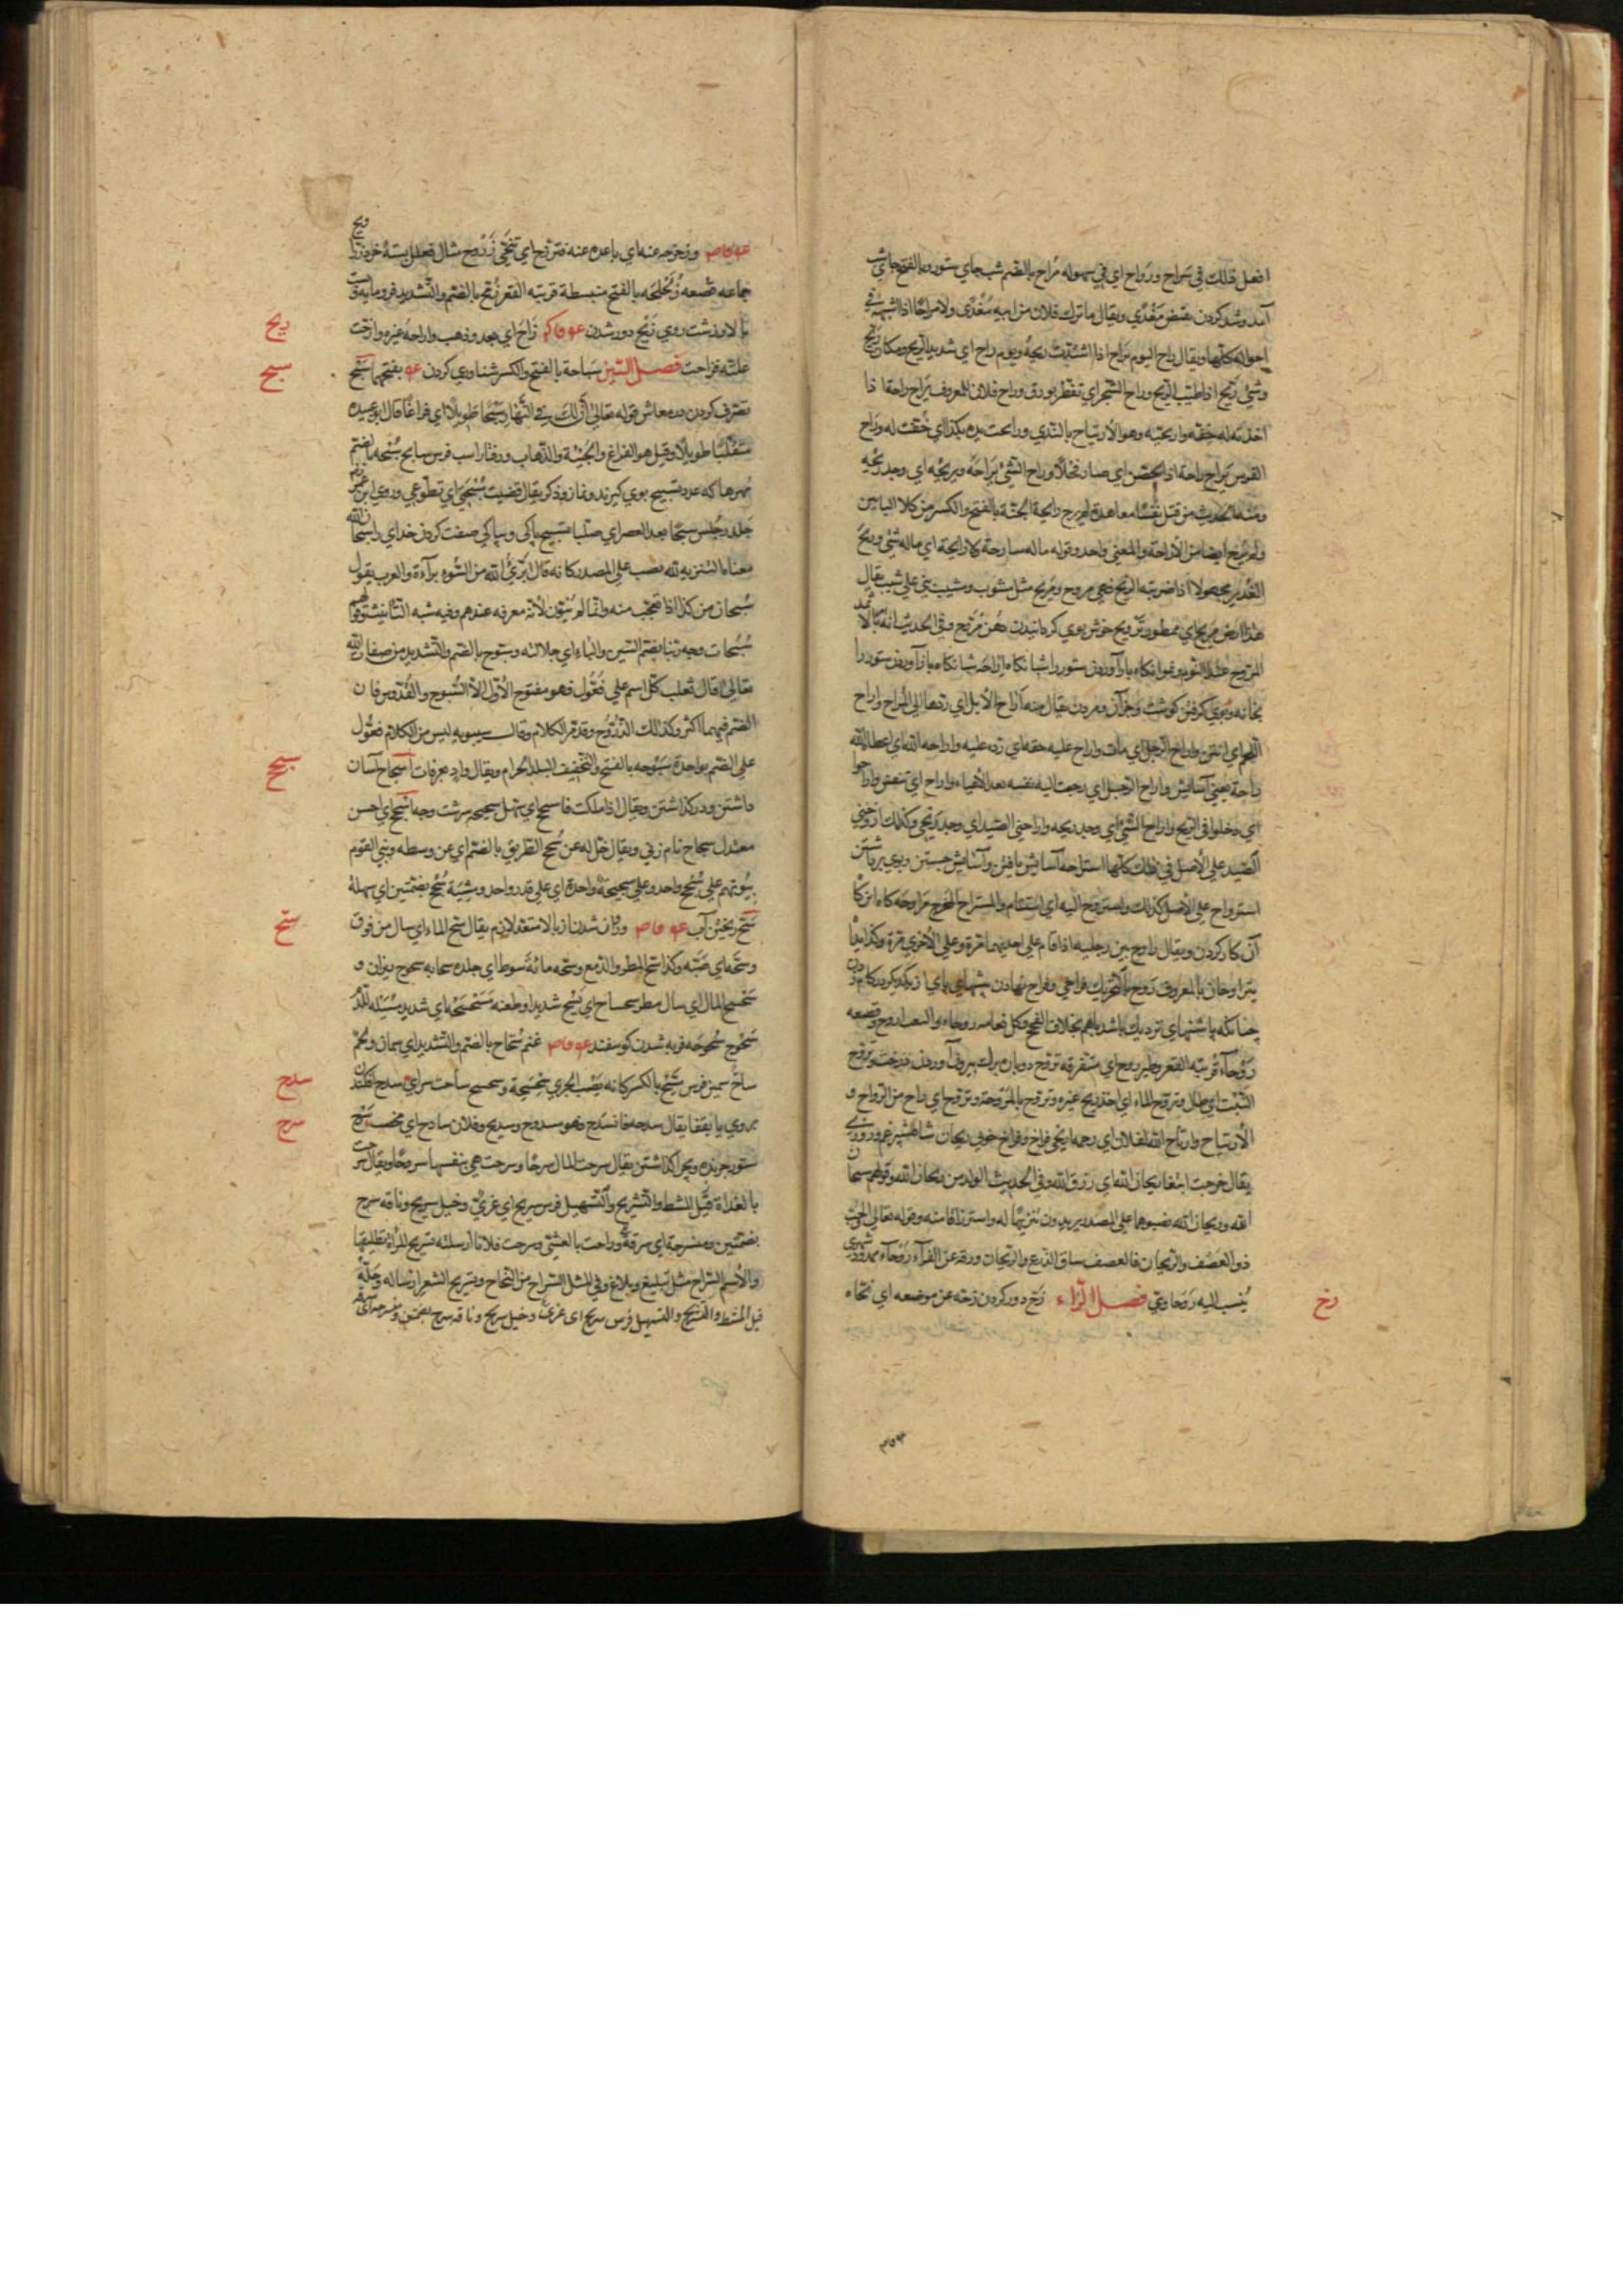 افعل ذلك في سَراح ورَواح اي في سهوله مُراح بالضم شب جاي ستور وبالفتح جاي
آمد وشد كردن نقيض مَغْدًي ويقال ما ترك فلان من ابيه مَغْدًي ولا مراحًا اذا اشبهه في
احواله كلها ويقال راح اليوم يَراح اذا اشتدّت ريحُهُ ويوم راح اي شديد الريح ومكان رَيّح
وشيء رَيّح اذا طيّب الريح وراح الشجر اي تفطّر بورق وراح فلان للمعروف يَراح راحة اذا
اخذته له خفّه واريحيّه وهو الارتياح بالنّدي وراحت يده بكذا اي خفّت له وراح
القوس يَراح راحة اذا تحصّن اي صار فحلًا وراح الشيء يَراحَهُ ويريحُه اي وجد ريحُه
ومنه الحديث من قتل نفسًا معاهدة لم يرح رايحة الجنّة بالفتح والكسر من كلا البابين
ولم يُرح ايضا من الاراحة والمعني واحد وقوله ماله سارحة ولا رايحة اي ماله شيء وريحَ
الغدير مجهولا اذا ضربته الريح فهي مروح ومَريح مثل مشوب ومشيب بني علي شيب يقال
عند النوم شبانكاه بازآوردن ستور را شبانكاه اراحة شبانكاه بازآوردن ستور را
بخانه وبوي كرفتن كوشت وجز آن ومردن يقال منه اَراح الابل اي ردها الي المُراح واراح
اللحم اي انتن واراح الرجل اي مات واراح عليه حقه اي رده عليه واراحه الله اي اعطاه الله
راحة يعني آسايش واراح الرجل اي رجعت اليه نفسه بعد الاعياء واراح اي تنفس واراحوا
اي دخلوا في الريح واراح الشيء اي وجد ريحه واراحني الصيد اي وجد ريحي وكذلك اروحني
الصّيد علي الاصل في ذلك كلها استراحه آسايش يافتن وآسايش جستن وبوي برداشتن
استرواح علي الاصل كذلك واستروح اليه اي استنام والمستراح المخرج مراوحه كاه اين كا
آن كار كردن ويقال راوح بين رجليه اذا قام علي احديهما مرة وعلي الاخري مرة وكذا هما
يتراوحان بالمعروف رَوَح بالتحريك فراخي وفراخ نهادن پيشهاي پاي از يكديكر در كام زدن
چنانكه پاشنهاي نزديك باشد باهم بخلاف الفحج وكل نعامه روحاء والنعت اروح وقصعه
رَوْحآء قريبه القعر وطير روح اي متفرقه تروّح دوباره برك بيرون آوردن درخت وتروّح
النّبت اي طال وتروّح الماء اي اخذ ريح غيره وتروّح بالمَرْوَحة وتروّح اي راح من الرّواح و
الارتياح وارتاح الله لفلان اي رحمه اريحي فراخ وفراخ خوي ريحان شاهسپرغم وروزي
يقال خرجت ابتغا ريحان الله اي رزق الله وفي الحديث الولد من ريحان الله وقولهم سبحان
الله وريحان الله نصبوهما علي المصدر يريدون تنزيهًا له واسترزاقا منه وقوله تعالي الحبّ
ذو العصف والرّيحان فالعصف ساق الزّرع والرّيحان ورقه عن الفرّآء رَوْحآء ممدود شهري
يُنسب اليه رَوْحاويّ فصل الزّاء زَحّ دور كردن زحّه عن موضعه اي نحّاه
زح
وزحزحه عنه اي باعده عنه فتزحزح اي تنحّي زَرْوَح مثال فعلل پسته خرد زراويح
جماعه قصعه زَلَحْلَحَه بالفتح منبسطة قريبه القعر زُمّح بالضم والتّشديد فرومايه وپست
بالا وزشت روي زَيْح دور شدن زَاحَ اي بعد وذهب وازاحهُ غيره وازحت
زيح
علّته فزاحت فصل السّين سَباحة بالفتح والكسر شناوري كردن بفتحهما سَبْح
سبح
تصرّف كردن در معاش قوله تعالي اِنَّ لَكَ فِي النَّهَارِ سَبْحًا طَوِيلًا اي فراغًا قال ابو عبيده
متقلّبًا طويلًا وقيل هو الفراغ والجيئة والذّهاب ورفتار اسب فرس سابح سُبْحه بالضم
مُهرها كه عدد تسبيح بوي كيرند ونماز وذكر يقال قضيت سُبحتي اي تطوّعي وروي ان عمر
جلد رجلين سبّحا بعد العصر اي صلّيا تسبيح پاكي وبپاكي صفت كردن خداي را سبحان الله
معناه التنزيه لله نصب علي المصدر كانه قال اُبرّئُ الله من السّوء برآءة والعرب يقول
سُبحان من كذا اذا تعجّب منه وانّما لم يُنوّن لانّه معرفه عندهم وفيه شبه التأنيث وقولهم
سُبُحات وجه ربّنا بضم السّين والباء اي جلالته وسبّوح بالضم والتّشديد من صفات الله
تعالي قال ثعلب كلّ اسم علي فُعّول فهو مفتوح الاوّل الا السّبّوح والقُدّوس فان
الضم فيهما اكثر وكذلك الذّرّوح وقد مرّ الكلام وقال سيبويه ليس من الكلام فُعّول
علي الضم بواحدة سَبُوحه بالفتح والتّخفيف البلد الحرام ويقال وادٍ بعرفات اِسجاح آسان
سجح
داشتن ودركذاشتن ويقال اذا ملكت فاسجح اي سهّل سجيحه سرشت وجه اَسْجَح اي حسن
معتدل سَجاح نام زني ويقال خلّ له عن سُجح الطّريق بالضم اي عن وسطه وبني القوم
بيُوتهم علي سُجحٍ واحد وعلي سجيحة واحدة اي علي قدر واحد ومِشْيَة سُجُح بضمّتين اي سهلة
سَحّ ريختن آب وروان شدن از بالا متعد لازم يقال سحّ الماء اي سال من فوق
سح
وسحّه اي صَبّه وكذا سحّ المطر والدّمع وسحّه مائة سوط اي جلده سحابه سحوح ريزان و
تسحسح المال اي سال مطر سحساح اي يسحّ شديدًا وطعنه مسحسحة اي شديد
سُحُوح سُحوحه فربه شدن كوسفند غنم سُحّاح بالضم والتّشديد اي سمان ولحم
ساحّ سمين فرس مِسَحّ بالكسر كانه يصُبّ الجري سَحْسَحَة وسحسح ساحت سراي سدح افكندن
سدح
بر روي يا بقفا يقال سدحه فانسدح وهو مسدوح وسديح وفلان سادح اي مخصب سَرْح
سرح
ستور چرنده وبچرا كذاشتن يقال سرحت المال سرحًا وسرحت هي بنفسها سروحًا ويقال سرحت
بالغداة قبل المشط والتّسريح والتّسهيل فرس سريح اي عُريٌ وخيل سريح وناقه سرح
بضمّتين ومنسرحة اي سريعة وراحت بالعشيّ وسرحت فلانا ارسلته تسريح المرأة تطليقها
والاسم السّراح مثل تبليغ وبلاغ وفي المثل السّراح من النّجاح وتسريح الشعر ارساله وحلّه
قبل المشط والتّسريح والتسهيل فرس سريح اي عُريٌ وخيل سريح وناقه سرح بضمتين ومنسرحه اي سريعة